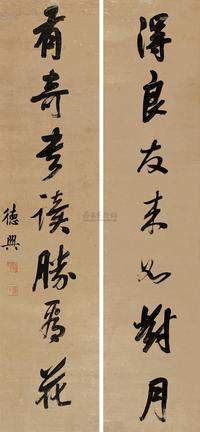 得良友來如對月
有奇書讀勝看花
德興